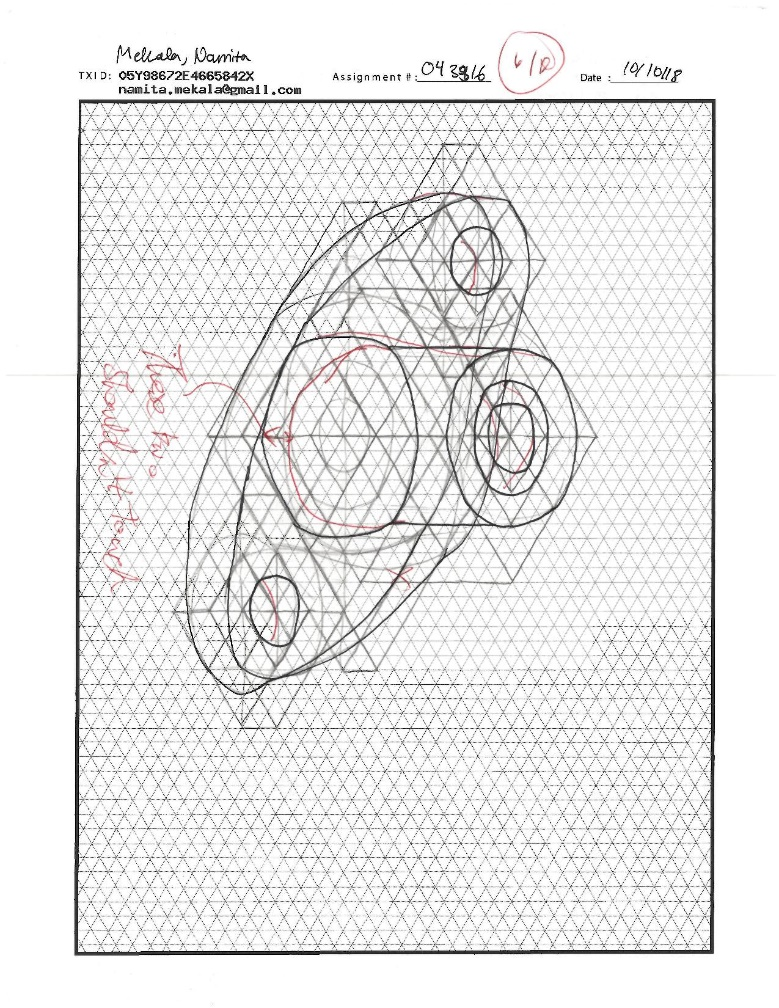 Mekala, Namita
TXID: 05Y98672E4665842X
namita.mekala@gmail.com
Assignment #: 043816
6/12
Date: 10/10/18
These two
shouldn't touch